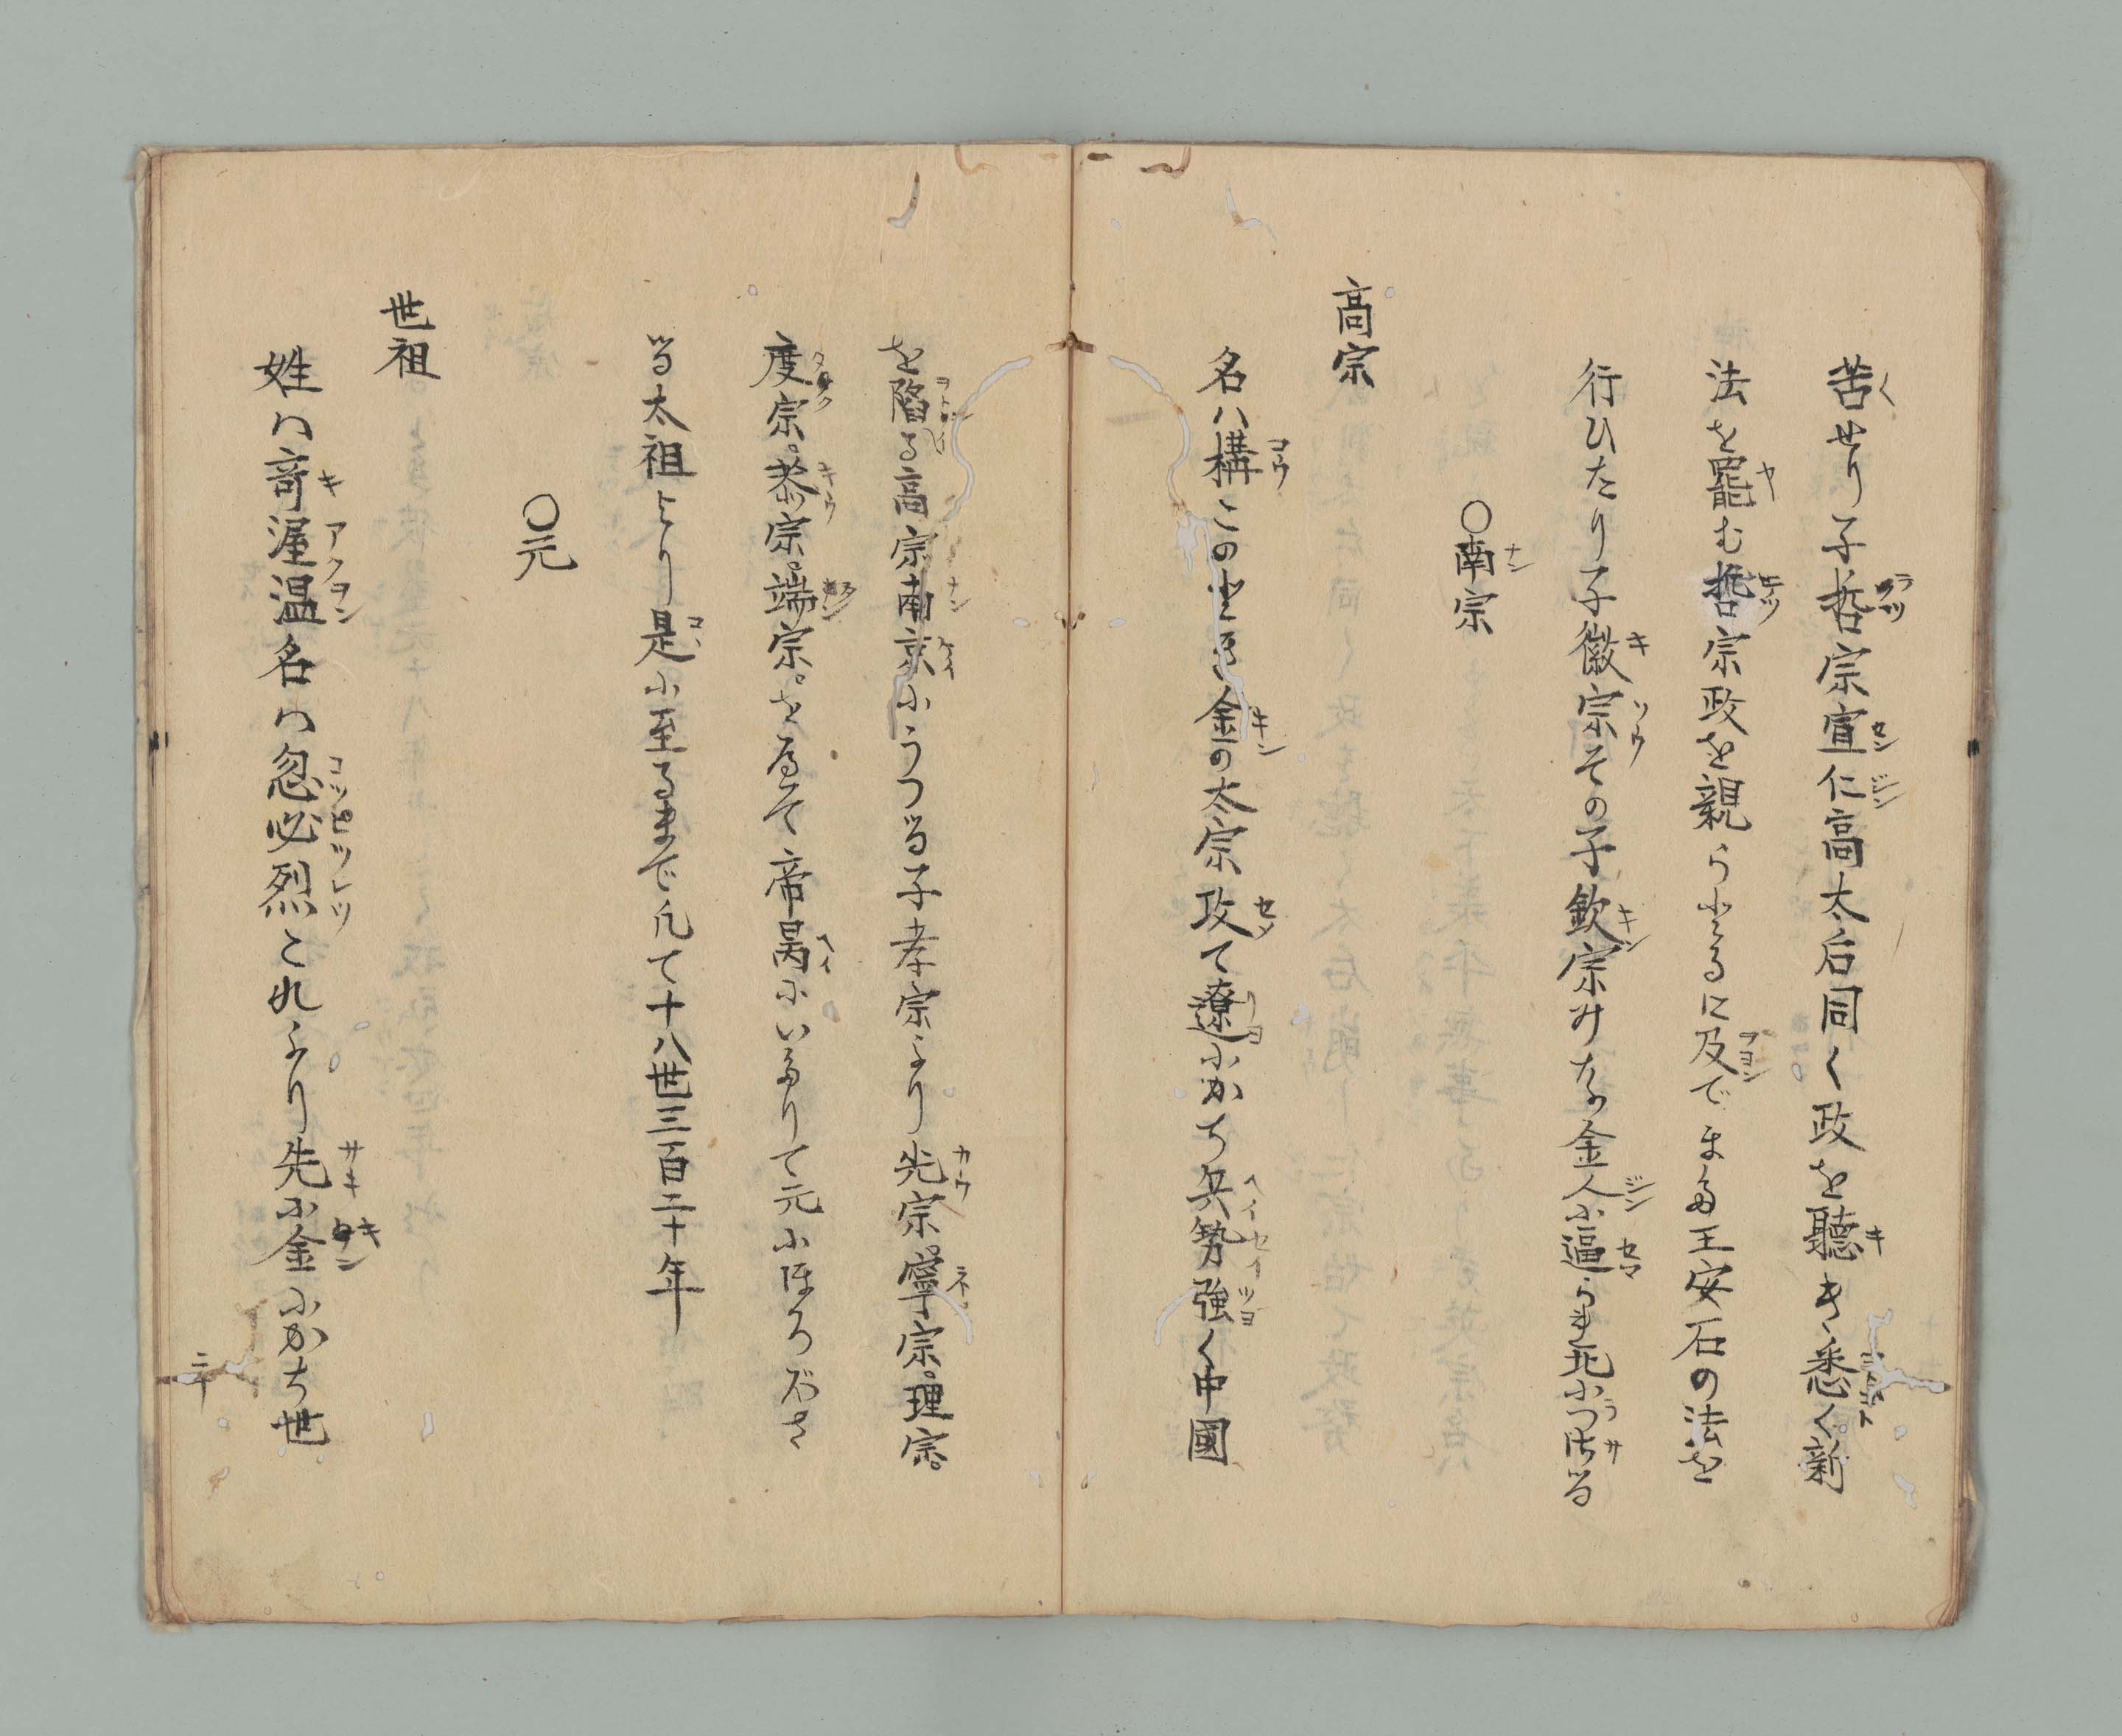 苦せり子哲宗宣仁高太后同く政を聴き悉く新
法を罷む哲宗政を親らするに及でまた王安石の法を
行ひたり子徽宗その子欽宗みな金人に逼られ北にうつさる
〇南宗
高宗
名ハ構このとき金の太宗攻て遼にかち兵勢強く中國
を陥る高宗南京にうつる子孝宗より光宗。寧宗。理宗。
度宗。恭宗。端宗。をへて帝昺にいたりて元にほろぼさ
る太祖より是に至るまで凡て十八世三百二十年
〇元
世祖
姓ハ奇渥温名ハ忽必烈これより先に金にかち世
二十